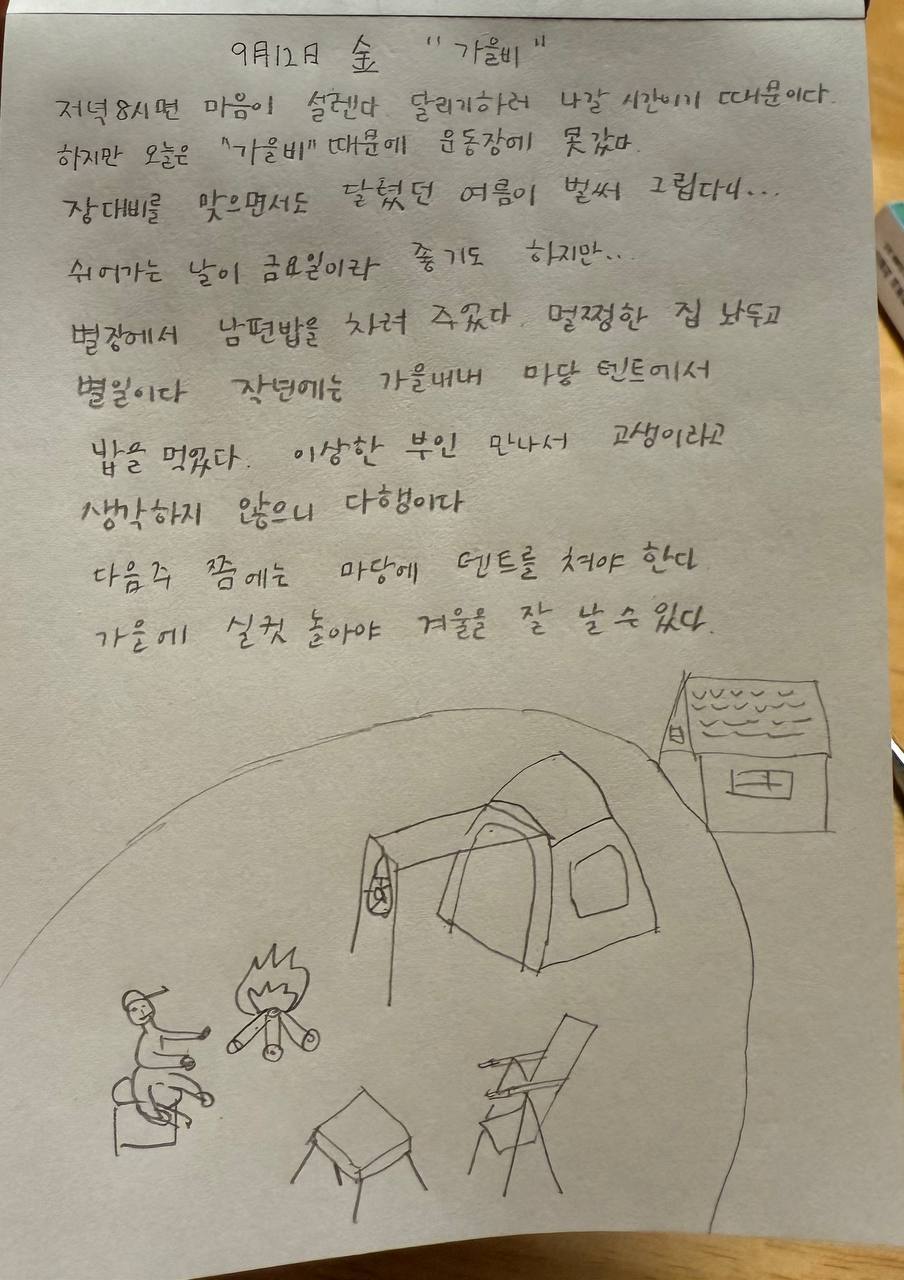 9月12日 金 "가을비"
저녁8시면 마음이 설렌다. 달리기하러 나갈 시간이기 때문이다.
하지만 오늘은 "가을비" 때문에 운동장에 못갔다.
장대비를 맞으면서도 달렸던 여름이 벌써 그립다니...
쉬어가는 날이 금요일이라 좋기도 하지만...
별장에서 남편밥을 차려 주었다. 멀쩡한 집 놔두고
별일이다 작년에는 가을내내 마당 텐트에서
밥을 먹었다. 이상한 부인 만나서 고생이라고
생각하지 않으니 다행이다
다음주 쯤에는 마당에 텐트를 쳐야 한다
가을에 실컷 놀아야 겨울을 잘 날 수 있다.